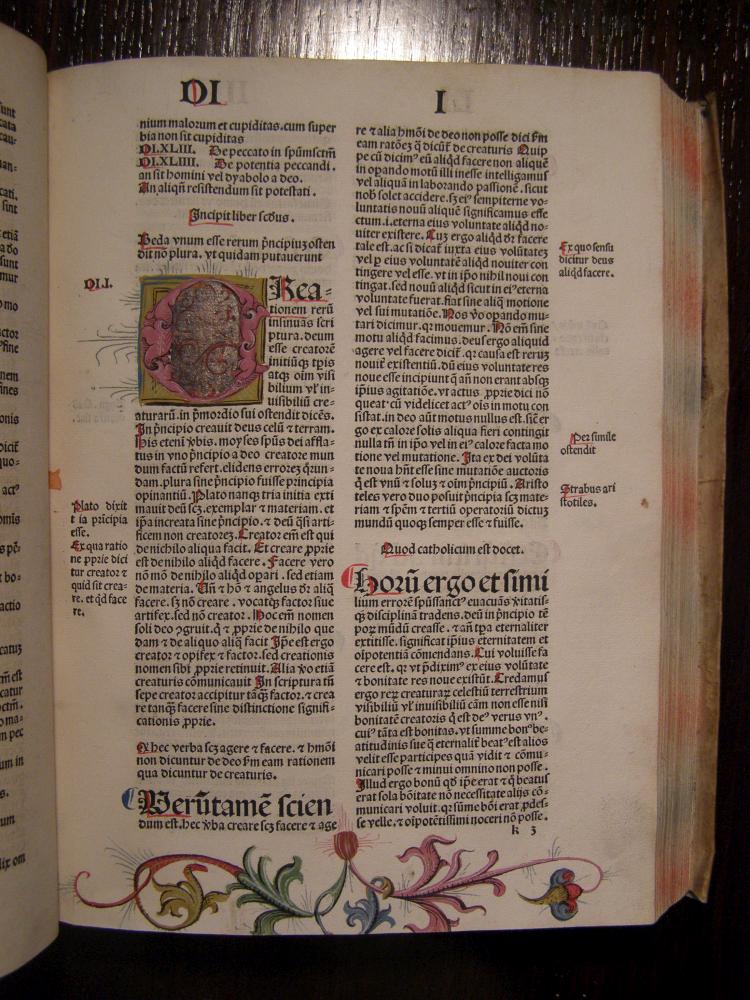 DI
I
nium malorum et cupiditas.cum super
bia non sit cupiditas
DI.XLIII. De peccato in spūmsctm̄
DI.XLIIII. De potentia peccandi.
an sit homini vel dyabolo a deo.
An aliqn̄ resistendum sit potestati.
Incipit liber scđus.
Beda vnum esse rerum p̄ncipiuȝ osten
dit nō plura. vt quidam putauerunt
DI.I.
Crea-
tionem rerū
insinuās scri
ptura.deum
esse creatorē
initiūqꝫ tp̄is
atqꝫ oīm visi
bilium vꝉ in-
uisibiliū cre-
aturarū.in p̄mordio sui ostendit dicēs.
In p̄ncipio creauit deus celū ⁊ terram.
His eteni v̄bis.moyses spūs dei affla-
tus in vno p̄ncipio a deo creatore mun
dum factū refert.elidens erroreȝ q̄run-
dam.plura sine p̄ncipio fuisse principia
opinantiū.Plato nanqꝫ tria initia exti
mauit.deū scȝ.exemplar ⁊ materiam.et
ip̄a increata sine p̄ncipio.⁊ deū q̄si arti-
ficem non creatoreȝ.Creator em̄ est qui
de nichilo aliqua facit. Et creare ꝓprie
est de nihilo aliqđ facere. Facere vero
nō mō de nihilo aliqđ opari.sed etiam
de materia. Vn̄ ⁊ hō ⁊ angelus dr̄ aliq̄
facere.sȝ nō creare.vocatqꝫ factor siue
artifex.sed nō creator. Hoc em̄ nomen
soli deo ꝯgruit.q̄ ⁊ ꝓprie de nihilo que
dam ⁊ de aliquo aliq̄ facit Ip̄e est ergo
creator ⁊ opifex ⁊ factor.sed creationis
nomen sibi ꝓprie retinuit. Alia v̄o etiā
creaturis cōmunicauit In scriptura tn̄
sepe creator accipitur tāqꝫ factor.⁊ crea
re tanqꝫ facere sine distinctione signifi-
cationis ꝓprie.
Plato dixit
t ia p̄icipia
esse.
Ex qua ratio
ne ꝓprie dici
tur creator ⁊
quid sit crea-
re.et qđ face
re.
Q hec verba scȝ agere ⁊ facere.⁊ hmōi
non dicuntur de deo fm eam rationem
qua dicuntur de creaturis.
Verūtamē scien
dum est.hec v̄ba creare scȝ facere ⁊ age
re ⁊ alia hmōi de deo non posse dici fm
eam ratōeȝ q̄ dicūt̄ de creaturis Quip
pe cū dicim⁹ eū aliqđ facere non aliquē
in opando motū illi inesse intelligamus
vel aliquā in laborando passionē.sicut
nob̄ solet accidere.sȝ ei⁹ sempiterne vo-
luntatis nouū aliquē significamus effe
ctum.i.eterna eius voluntate aliqđ no-
uiter existere. Cuȝ ergo aliqđ dr̄ facere
tale est.ac si dicat̄ iuxta eius volūtateȝ
vel ꝑ eius voluntatē aliqđ nouiter con
tingere vel esse.vt in ip̄o nihil noui con
tingat.sed nouū aliqđ sicut in ei⁹ eterna
voluntate fuerat.fiat sine aliq̄ motione
vel sui mutatiōe. Nos v̄o opando mu-
tari dicimur.qꝛ mouemur. Nō em̄ sine
motu aliqđ facimus.deus ergo aliquid
agere vel facere dicit̄.qꝛ causa est reruȝ
nouit̄ existentiū.dū eius voluntate res
noue esse incipiunt q̄ añ non erant absqꝫ
ip̄ius agitatiōe.vt actus ꝓprie dici nō
queat.cū videlicet act⁹ oīs in motu con
sistat.in deo aūt motus nullus est.sic̄ er
go ex calore solis aliqua fieri contingit
nulla tn̄ in ip̄o vel in ei⁹ calore facta mo
tione vel mutatione. Ita ex dei volūta
te noua hn̄t esse sine mutatiōe auctoris
q̄ est vnū ⁊ soluȝ ⁊ oīm p̄ncipiū. Aristo
teles vero duo posuit p̄ncipia scȝ mate-
riam ⁊ sp̄em ⁊ tertiū operatoriū dictuȝ
mundū quoqꝫ semper esse ⁊ fuisse.
Ex quo sensu
dicitur deus
aliqđ facere.
Per simile
ostendit
Strabus ari
stotiles.
Quod catholicum est docet.
Horū ergo et simi
lium errorē spūssanct⁹ euacuās v̄itatis-
qꝫ disciplinā tradens.deū in p̄ncipio tē
poꝝ mūdū creasse.⁊ añ tp̄a eternaliter
extitisse.significat ip̄ius eternitatem et
oīpotentiā cōmendans. Cui voluisse fa
cere est.qꝛ vt p̄dixim⁹ ex eius volūtate
⁊ bonitate res noue existūt. Credamus
ergo reꝝ creaturaꝝ celestiū terrestrium
visibiliū vꝉ inuisibiliū cām non esse nisi
bonitatē creatoris q̄ est de⁹ verus vn⁹.
cui⁹ tāta est bonitas.vt summe bon⁹ be-
atitudinis sue q̄ eternalit̄ beat⁹ est alios
velit esse participes quā vidit ⁊ cōmu-
nicari posse ⁊ minui omnino non posse.
Illud ergo bonū qđ ip̄e erat ⁊ q̄ beatus
erat sola bōitate nō necessitate alijs cō-
municari voluit.qꝛ sūme bōi erat ꝓdes-
se velle.⁊ oīpotētissimi noceri nō posse.
k 3